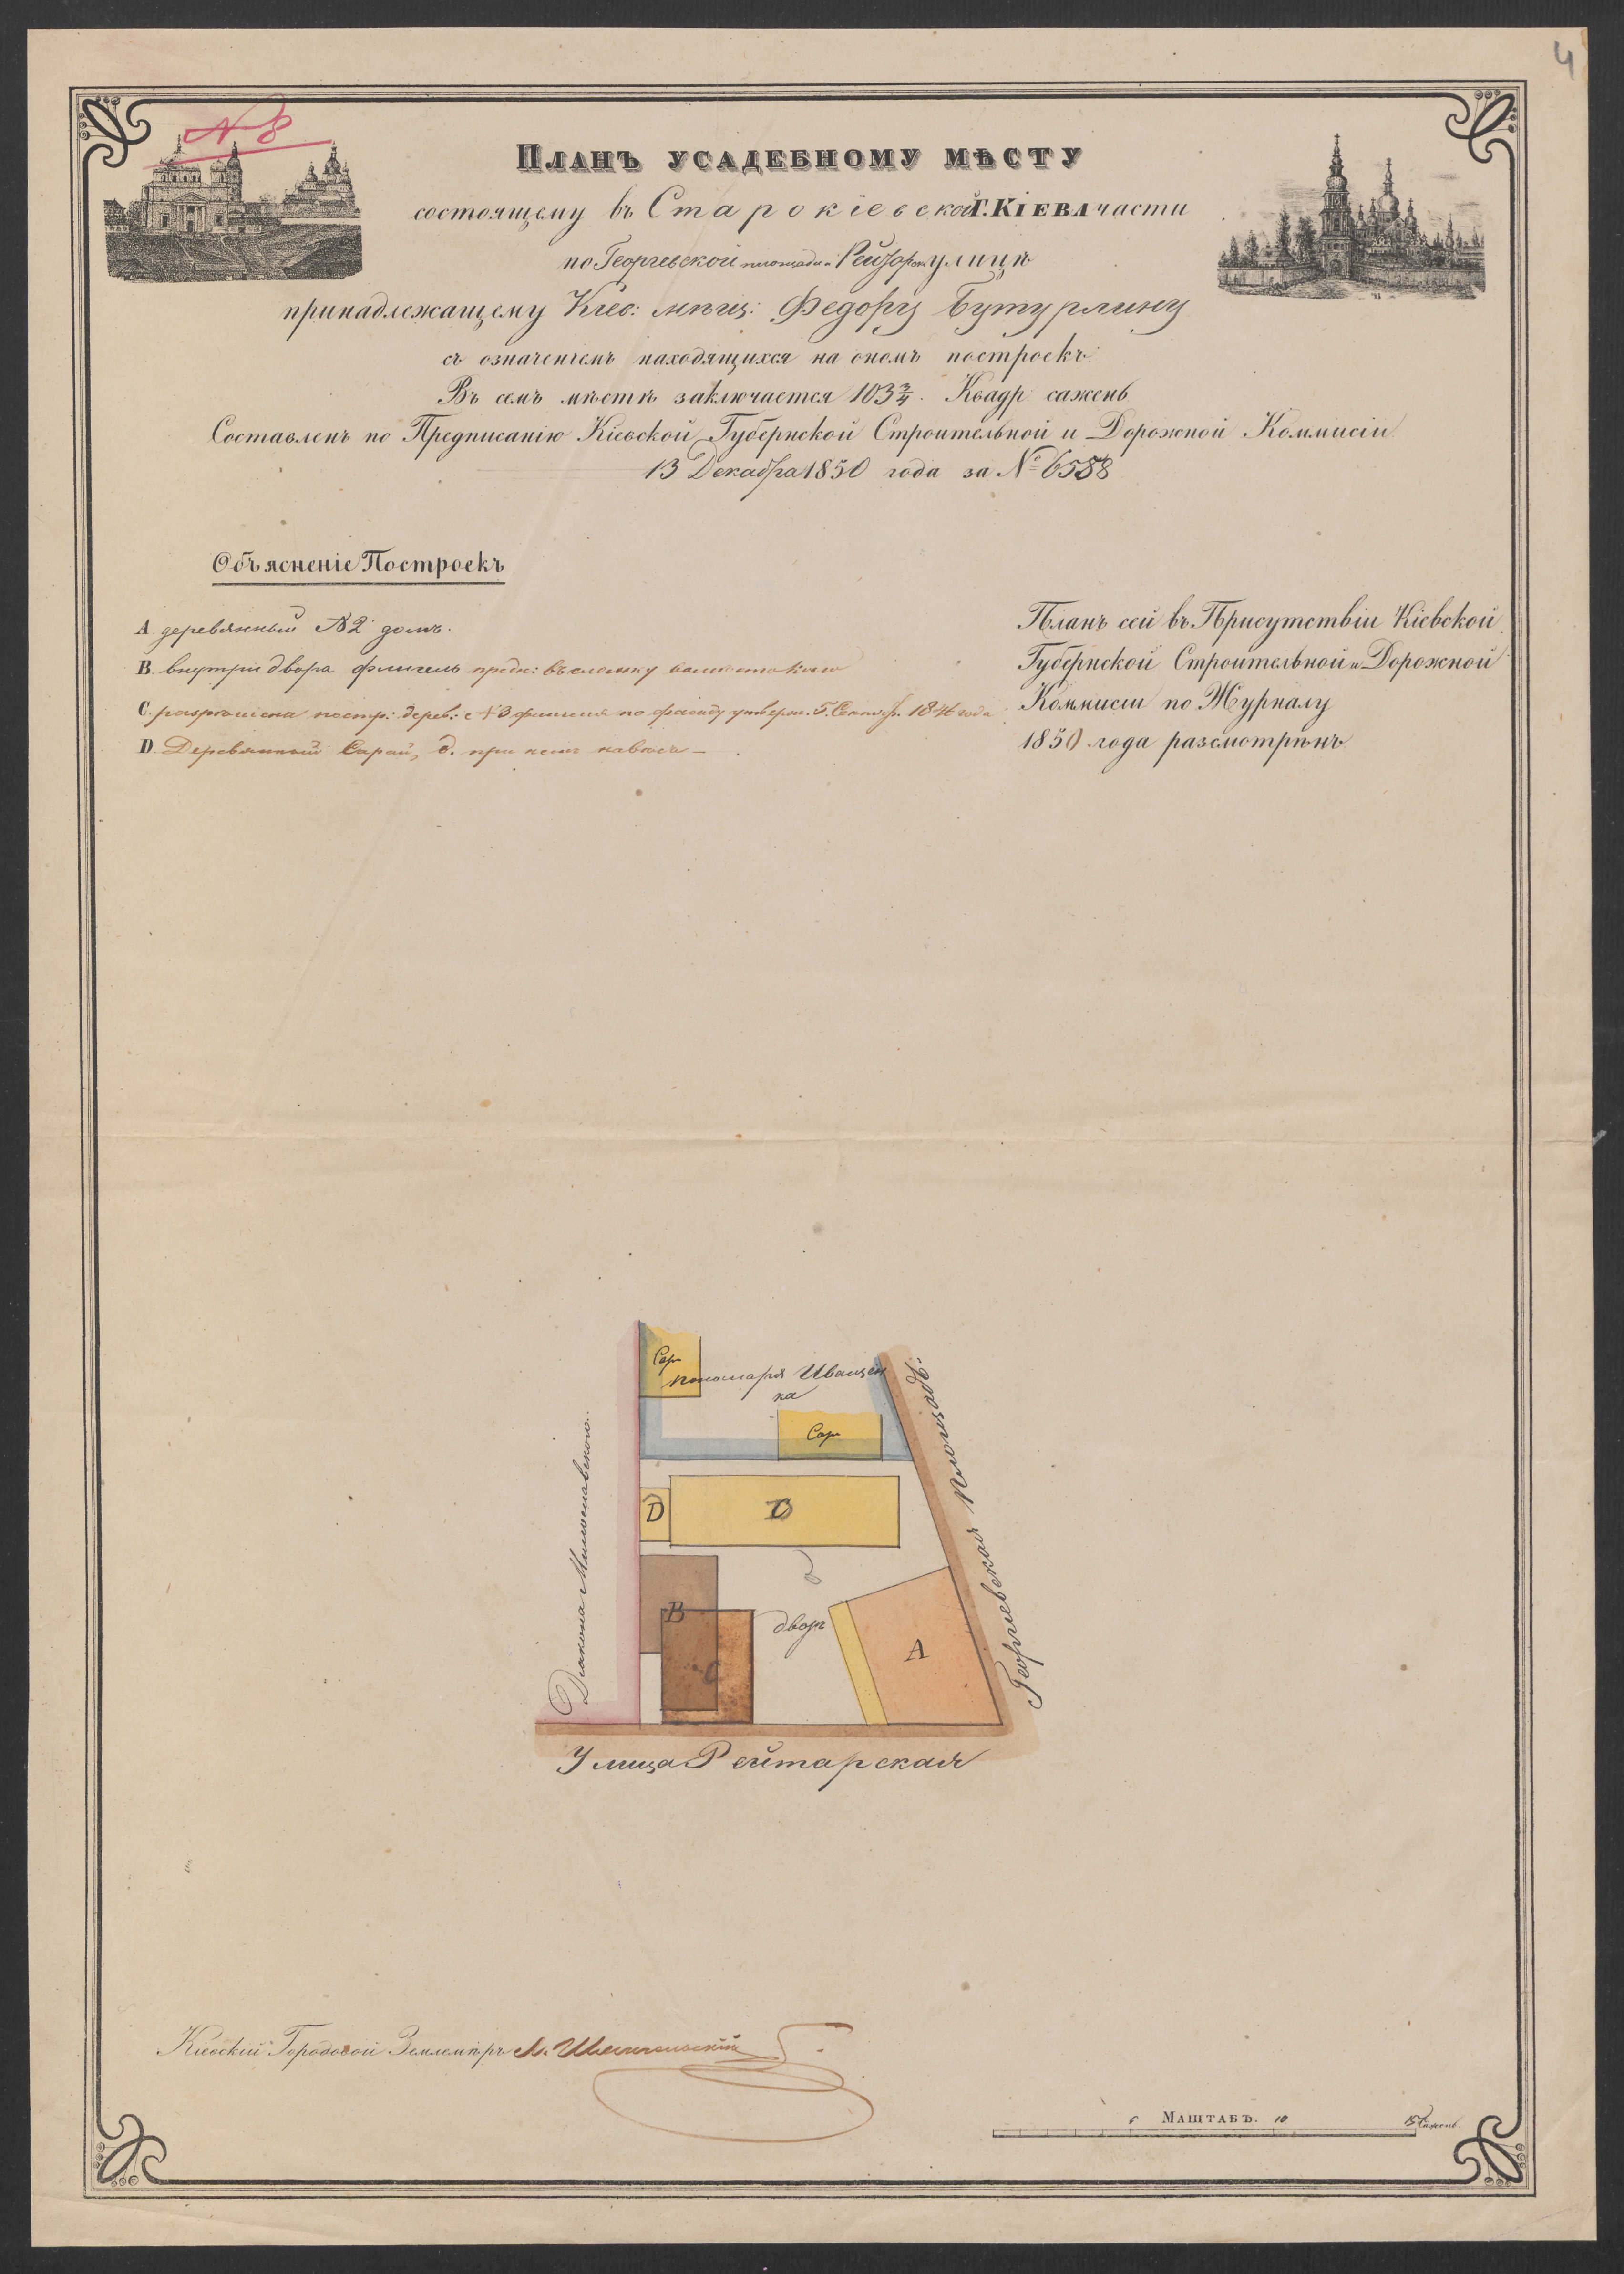 4
N 8
ПЛАНЪ УСАДЕБНОМУ МѢСТУ
состоящему въ Старокіевской Г. КІЕВА части
по Георгіевской площади и Рейтарск улицѣ
принадлежащему Кіев: мѣщ: Федору Бутурлину
съ означеніемъ находящихся на ономъ построекъ.
Въ семъ мѣстѣ заключается 103 3/4. Квадр сажень
Составленъ по Предписанію Кіевской Губернской Строительной и Дорожной Коммисіи
13 Декабра 1850 года за № 6588
Объясненіе Построекъ
A деревянный № 2 домъ.
B внутри двора флигель предн: въ сломку
C. постр: дерев: с флигеля по фасаду утверж. 5. Сентяб. 1846 года
D Деревянный Сарай, d. при немъ навѣсъ
Планъ сей въ Присутствіи Кіевской
Губернской Строительной и Дорожной
Коммисіи по Журналу
1850 года разсмотрѣнъ
Сар
пономаря Иващен
ка
Сар
D
C
B
C
дворъ
d
A
Діакона Милославскаго.
Георгіевская площадь.
Улица Рейтарская
Кіевскій Городовой Землемѣръ
5 МАШТАБЪ. 10 15 Сажень